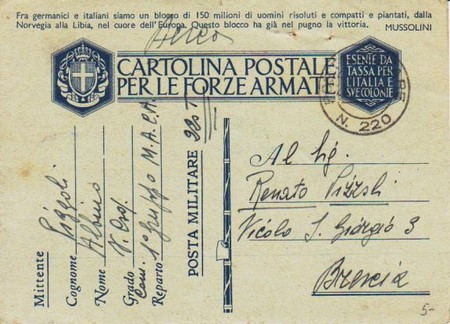 Fra germanici e italiani siamo un blocco di 150 milioni di uomini risoluti e compatti e piantati, dalla
Norvegia alla Libia, nel cuore dell'Europa. Questo blocco ha già nel pugno la vittoria. MUSSOLINI
Aerea
CARTOLINA POSTALE
PER LE FORZE ARMATE
ESENTE DA
TASSA PER
L'ITALIA E
SVE COLONIE
N. 220
Al Sig.
Renato Pizzoli
Vicolo S. Giorgio 3
Brescia
5-
Mittente
Cognome Pizzoli
Nome Albino
Grado V.
Reparto 1° Gruppo M.A.C.A.
POSTA MILITARE 220